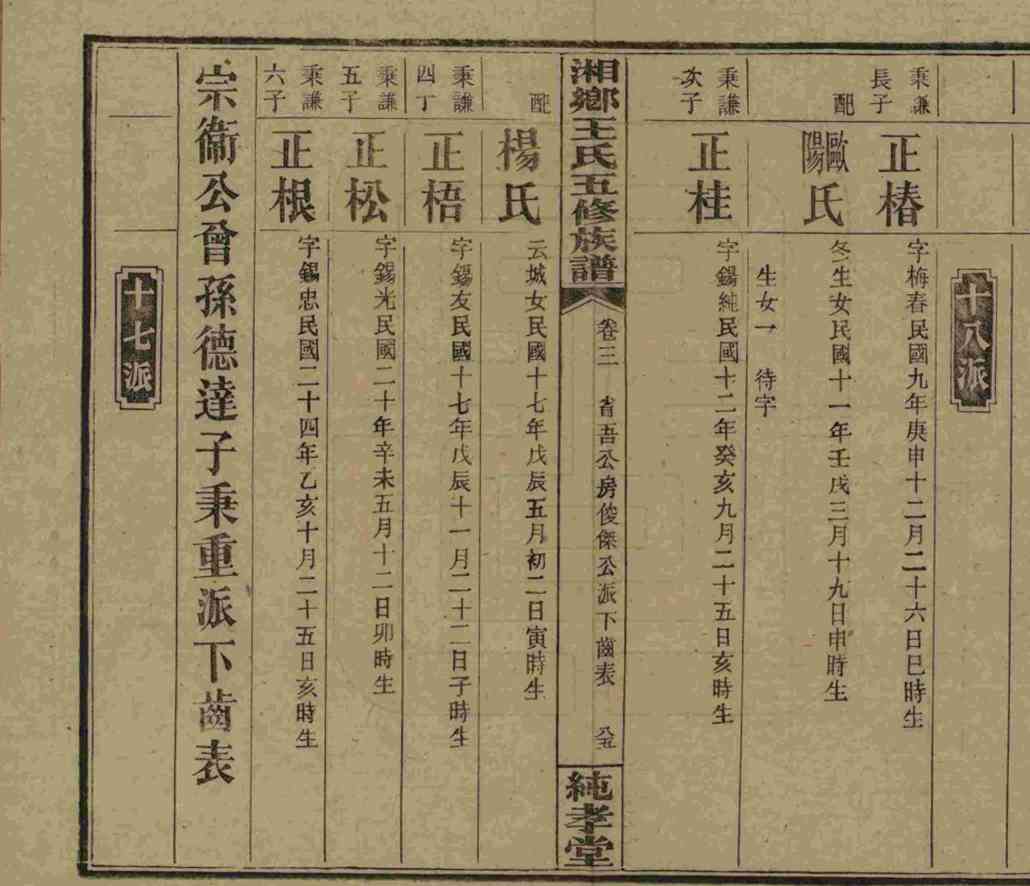 十八派
秉謙長子
正椿
字梅春民國九年庚申十二月二十六日巳時生
配
歐陽氏
冬生女民國十一年壬戌三月十九日申時生
生女一 待字
秉謙次子
正桂
字錫純民國十二年癸亥九月二十五日亥時生
湘鄉王氏五修族譜
卷三 省吾公房俊傑公派下齒表 八五
純孝堂
配
楊氏
云城女民國十七年戊辰五月初二日寅時生
秉謙四丁
正梧
字錫友民國十七年戊辰十一月二十二日子時生
秉謙五子
正松
字錫光民國二十年辛未五月十二日卯時生
秉謙六子
正根
字錫忠民國二十四年乙亥十月二十五日亥時生
宗衞公曾孫德達子秉重派下齒表
十七派